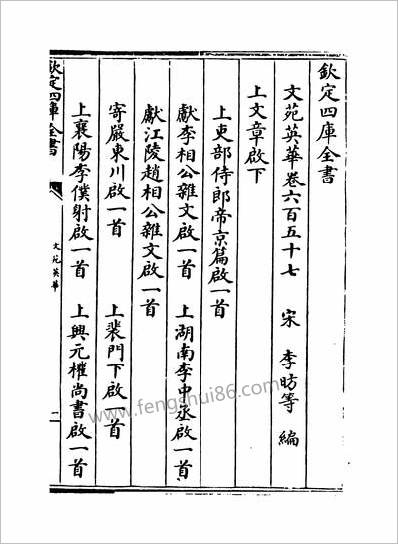 欽定四庫全書
文苑英華卷六百五十七 宋 李昉等 編
上文章啟下
上吏部侍郎帝京篇啟一首
獻李相公雜文啟一首 上湖南李中丞啟一首
獻江陵趙相公雜文啟一首
寄嚴東川啟一首 上裴門下啟一首
上襄陽李僕射啟一首 上興元權尚書啟一首
欽定四庫全書
文苑英華
二
www.fengshui86.com